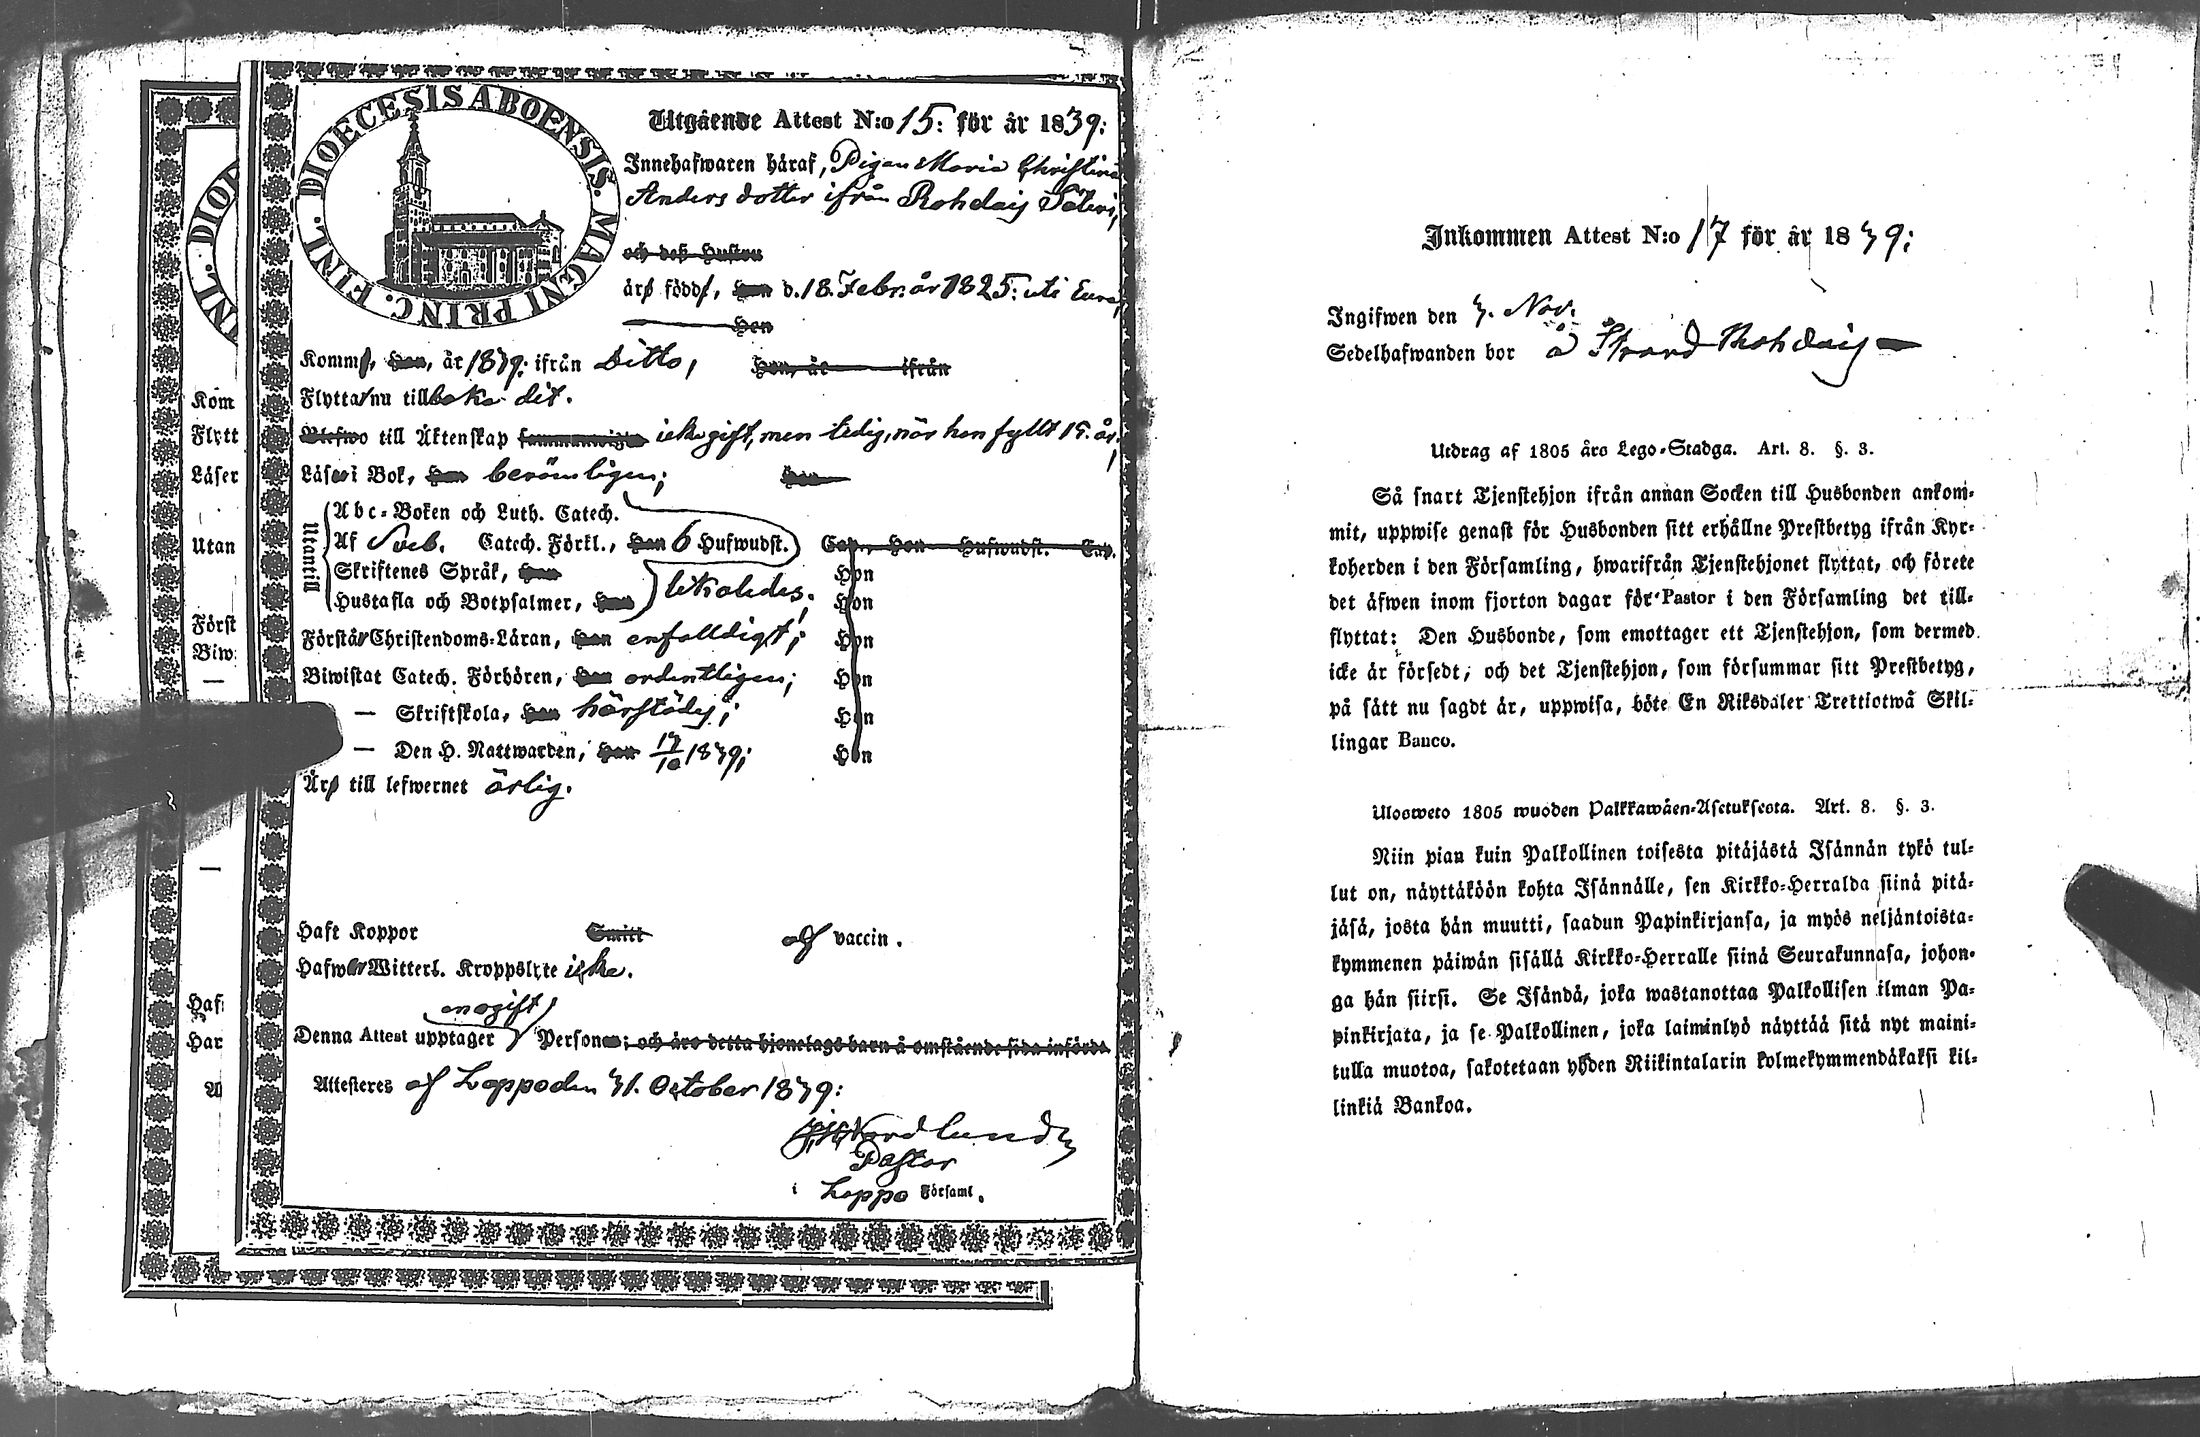 DIOECESIS ABOENSIS. MAGNI PRINC. FINL.
Utgående Attest N:o 15: för år 1839:
Innehafwaren häraf, Pigan Maria Christina
Anders dotter ifrån Rohdaij Säteri,
och deß Hustru
äro född, han d. 18. Febr. år 1825: uti Eura,
Hon
Komm, han, år 1839: ifrån Ditto, Hon, år ifrån
Flyttar nu tillbaka dit.
Blefwo till Äktenskap icke gift, men ledig, när hon fyllt 15. år.
Läser i Bok, han berömligen; Hon
Utantill
Abc-Boken och Luth. Catech.
Af Sveb. Catech. Förkl., Han 6 Hufwudst. Cap., Hon Hufwudst. Cap.
Skriftenes Språk, han Hon
Hustafla och Botpsalmer, han likaledes. Hon
Förstår Christendoms-Läran, han enfalldigt; Hon
Biwistat Catech. Förhören, han ordentligen; Hon
— Skriftskola, han härstädes; Hon
— Den H. Nattwarden, han 13/10 1839; Hon
Äro till lefwernet ärlig.
Haft Koppor Smitt af vaccin.
Hafwer Witterl. Kroppslyte icke.
en ogift
Denna Attest upptager Person; och äro detta hjonelags barn å omstående sida införda
Attesteres af Loppo den 31. October 1839:
Nordlund
Pastor
i Loppo Församl.
Kom
Flytt
Läser
Utan
Först
Biw
Haf
Har
Inkommen Attest N:o 17 för år 1839:
Ingifwen den 3. Nov.
Sedelhafwanden bor å Strand Rohdaij
Utdrag af 1805 års Lego-Stadga. Art. 8. §. 3.
Så snart Tjenstehjon ifrån annan Socken till Husbonden ankom-
mit, uppwise genast för Husbonden sitt erhållne Prestbetyg ifrån Kyr-
koherden i den Församling, hwarifrån Tjenstehjonet flyttat, och förete
det äfwen inom fjorton dagar för Pastor i den Församling det till-
flyttat: Den Husbonde, som emottager ett Tjenstehjon, som dermed
icke är försedt, och det Tjenstehjon, som försummar sitt Prestbetyg,
på sätt nu sagdt är, uppwisa, böte En Riksdaler Trettiotwå Skil-
lingar Banco.
Ulosweto 1805 wuoden Palkkawäen-Asetuksesta. Art. 8. §. 3.
Niin pian kuin Palkollinen toisesta pitäjästä Isännän tykö tul-
lut on, näyttäköön kohta Isännälle, sen Kirkko-Herralda siinä pitä-
jäsä, josta hän muutti, saadun Papinkirjansa, ja myös neljäntoista-
kymmenen päiwän sisällä Kirkko-Herralle siinä Seurakunnasa, johon-
ga hän siirsi. Se Isändä, joka wastanottaa Palkollisen ilman Pa-
pinkirjata, ja se Palkollinen, joka laiminlyö näyttää sitä nyt maini-
tulla muotoa, sakotetaan yhden Riikintalarin kolmekymmendäkaksi kil-
linkiä Bankoa.